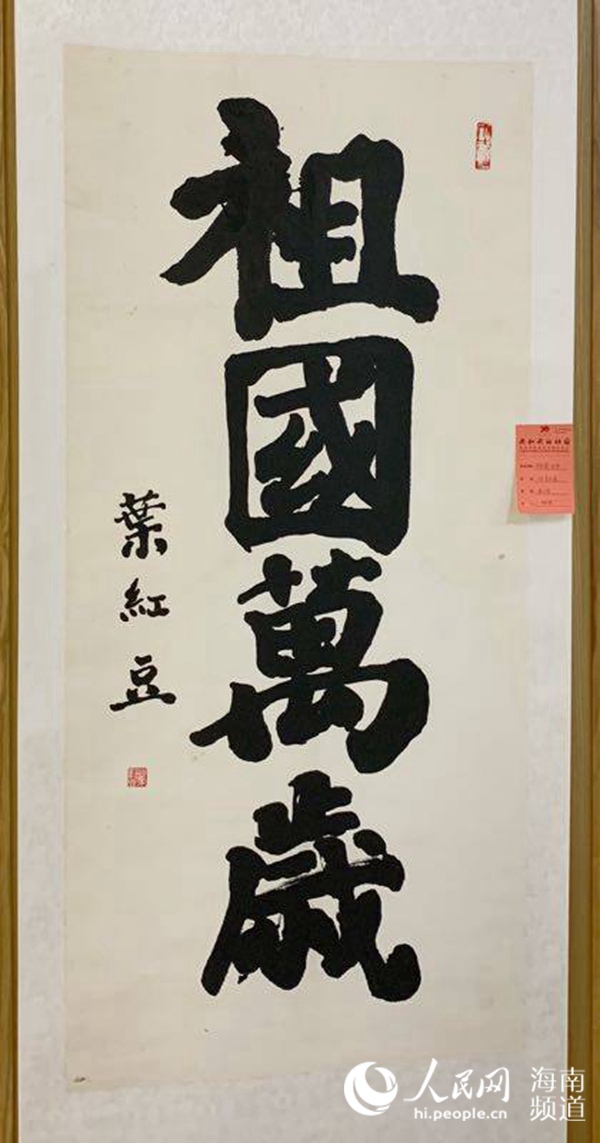 祖國萬歲
葉紅豆
人民网
hi.people.cn
海南
频道